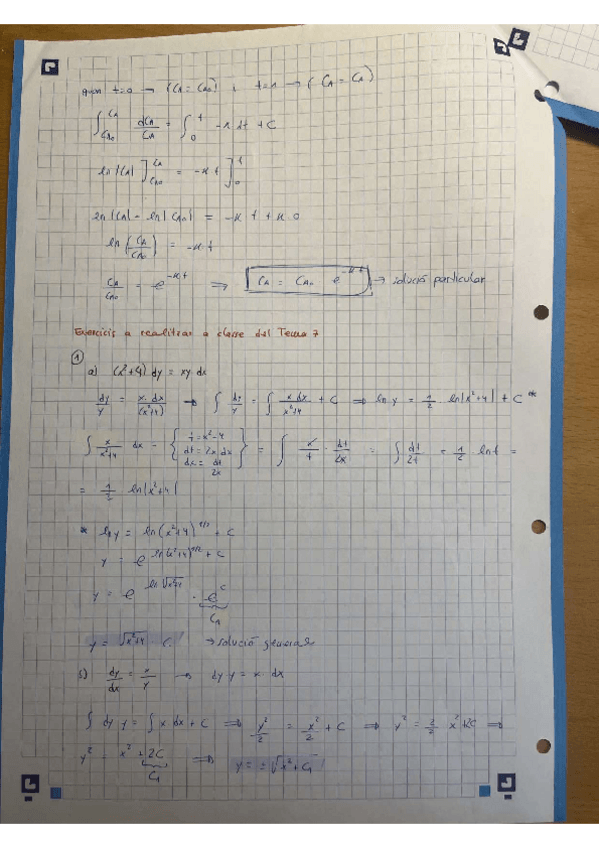 quan t=0 → (CA = CA₀) i t=t → (CA = CA)
∫_{CA₀}^{CA} dCA/CA = ∫_0^t -K dt + C
ln|CA| ]_{CA₀}^{CA} = -K t ]_0^t
ln|CA| - ln|CA₀| = -K t + K·0
ln(CA/CA₀) = -K t
CA/CA₀ = e^{-Kt} ⇒ CA = CA₀ e^{-Kt} → solució particular
Exercicis a realitzar a classe del Tema 7
① a) (x²+4) dy = xy dx
dy/y = x·dx/(x²+4) → ∫ dy/y = ∫ x dx/x²+4 + C ⇒ ln y = 1/2 · ln|x²+4| + C *
∫ x/x²+4 dx = { t = x²-4 dt = 2x dx dx = dt/2x } = ∫ x/t · dt/2x = ∫ dt/2t = 1/2 · ln t =
= 1/2 ln|x²+4|
* ln y = ln(x²+4)^{1/2} + C
y = e^{ln(x²+4)^{1/2} + C}
y = e^{ln√x²+4} · e^C
C₁
y = √x²+4 · C → solució general
b) dy/dx = x/y → dy·y = x·dx
∫ dy y = ∫ x dx + C ⇒ y²/2 = x²/2 + C ⇒ y² = 2/2 x² + 2C ⇒
y² = x² + 2C ⇒ y = ±√x² + C₁
C₁